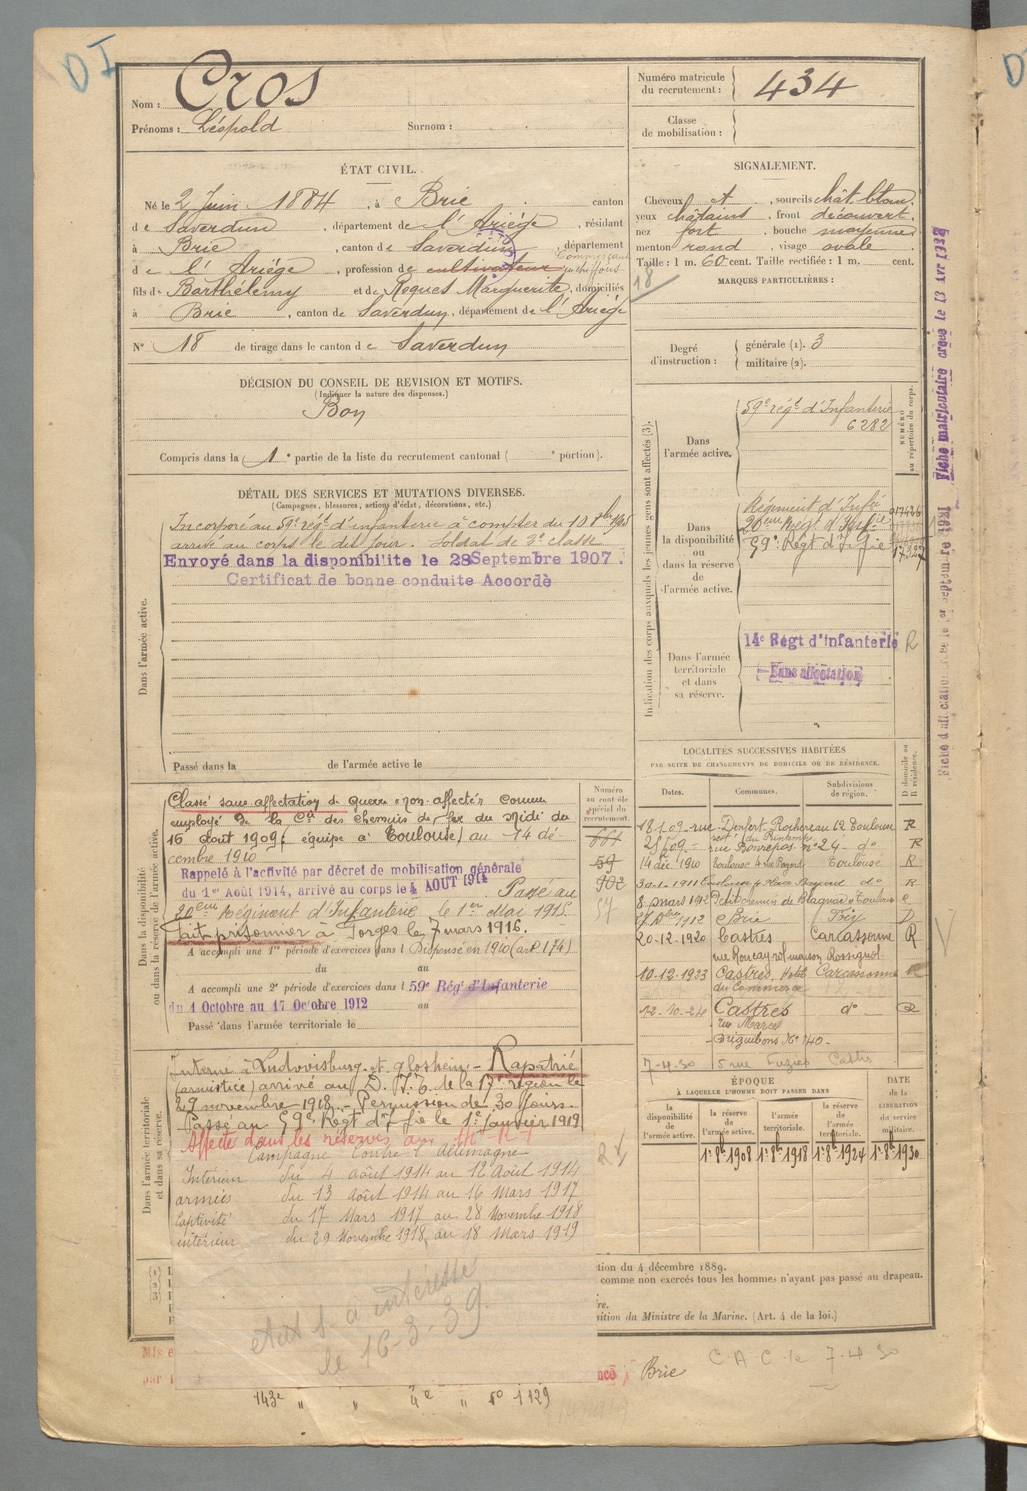 DI
Nom : Cros
Prénoms : Léopold Surnom :
Numéro matricule du recrutement : 434
Classe de mobilisation :
ÉTAT CIVIL.
Né le 2 Juin 1884, à Brie canton
de Saverdun, département de l'Ariège, résidant
à Brie, canton de Saverdun, département
de l'Ariège, profession de cultivateur
fils de Barthélemy et de Roques Marguerite, domiciliés
à Brie, canton de Saverdun, département de l'Ariège
N° 18 de tirage dans le canton de Saverdun
SIGNALEMENT.
Cheveux et, sourcils chât blonds,
yeux châtains, front découvert,
nez fort, bouche moyenne,
menton rond, visage ovale
Taille : 1 m. 60 cent. Taille rectifiée : 1 m. cent.
18
MARQUES PARTICULIÈRES :
Degré d'instruction : générale (1). 3
militaire (2).
DÉCISION DU CONSEIL DE REVISION ET MOTIFS.
(Indiquer la nature des dispenses.)
Bon
Compris dans la 1e partie de la liste du recrutement cantonal ( e portion).
DÉTAIL DES SERVICES ET MUTATIONS DIVERSES.
(Campagnes, blessures, actions d'éclat, décorations, etc.)
Dans l'armée active.
Incorporé au 59e régt d'infanterie à compter du 10 8bre 1905
arrivé au corps le dit jour. Soldat de 2e classe
Envoyé dans la disponibilité le 28 Septembre 1907.
Certificat de bonne conduite Accordé
Passé dans la de l'armée active le
Indication des corps auxquels les jeunes gens sont affectés (3).
NUMÉRO au répertoire du corps.
Dans l'armée active.
59e régt d'Infanterie
6282
Dans la disponibilité ou dans la réserve de l'armée active.
Régiment d'Infie
20eme Régt d'Infie
59e Régt d'Infie
Dans l'armée territoriale et dans sa réserve.
14e Régt d'Infanterie R
Sans affectation
Fiche matriculaire créée le 13 Avr 1932
LOCALITÉS SUCCESSIVES HABITÉES
PAR SUITE DE CHANGEMENTS DE DOMICILE OU DE RÉSIDENCE.
Dates. Communes. Subdivisions de région. D domicile ou R résidence.
18-1-09 rue Denfert Rochereau 62 Toulouse R
rue Bonrepos n° 24 do R
14 déc 1910 Toulouse Toulouse R
30-1-1911 Toulouse 4 Place Bayard do R
8 mars 1912 Petit chemin de Blagnac à Toulouse
1912 Brie Foix D
20-12-1920 Castres Carcassonne R
maison Rossignol
10-12-1923 Castres Carcassonne
du Commerce
12-10-24 Castres do R
rue Marcel
Briguiboul N° 40
7-4-30 5 rue Fuziès Castres
Dans la disponibilité ou dans la réserve de l'armée active.
Numéro au contrôle spécial du recrutement.
Classé sans affectation de guerre "non-affecté" comme
employé de la Cie des chemins de fer du Midi du
15 août 1909 (équipe à Toulouse) au 14 dé-
cembre 1910
Rappelé à l'activité par décret de mobilisation générale
du 1er Août 1914, arrivé au corps le 4 AOUT 1914 Passé au
20eme Régiment d'Infanterie le 1er Mai 1915.
Fait prisonnier à Forges le 7 mars 1916.
A accompli une 1re période d'exercices dans l Dispensé en 1910 (art 174)
du au
A accompli une 2e période d'exercices dans l 59e Régt d'Infanterie
du 1 Octobre au 17 Octobre 1912 au
Passé dans l'armée territoriale le
Dans l'armée territoriale et dans sa réserve.
Interné à Ludwisburg et - Rapatrié
(armistice) arrivé au D. I. 6 de la 17e région le
29 novembre 1918. - Permission de 30 jours.
Passé au 59e Régt d'Infie le 1er janvier 1919
Affecté dans les réserves au
Campagne contre l'Allemagne
Intérieur du 4 août 1914 au 12 Août 1914
armées du 13 Août 1914 au 16 Mars 1917
Captivité du 17 Mars 1917 au 28 Novembre 1918
intérieur du 29 Novembre 1918, au 18 Mars 1919
état s. a intéressé
le 16-3-39
ÉPOQUE
À LAQUELLE L'HOMME DOIT PASSER DANS
DATE DE LA LIBÉRATION du service militaire.
la disponibilité de l'armée active. la réserve de l'armée active. l'armée territoriale. la réserve de l'armée territoriale.
1er 8bre 1908 1er 8bre 1918 1er 8bre 1924 1er 8bre 1930
tion du 4 décembre 1889.
comme non exercés tous les hommes n'ayant pas passé au drapeau.
re.
sition du Ministre de la Marine. (Art. 4 de la loi.)
Brie C A C le 7-4-30
143e " " 4e " n° 1129